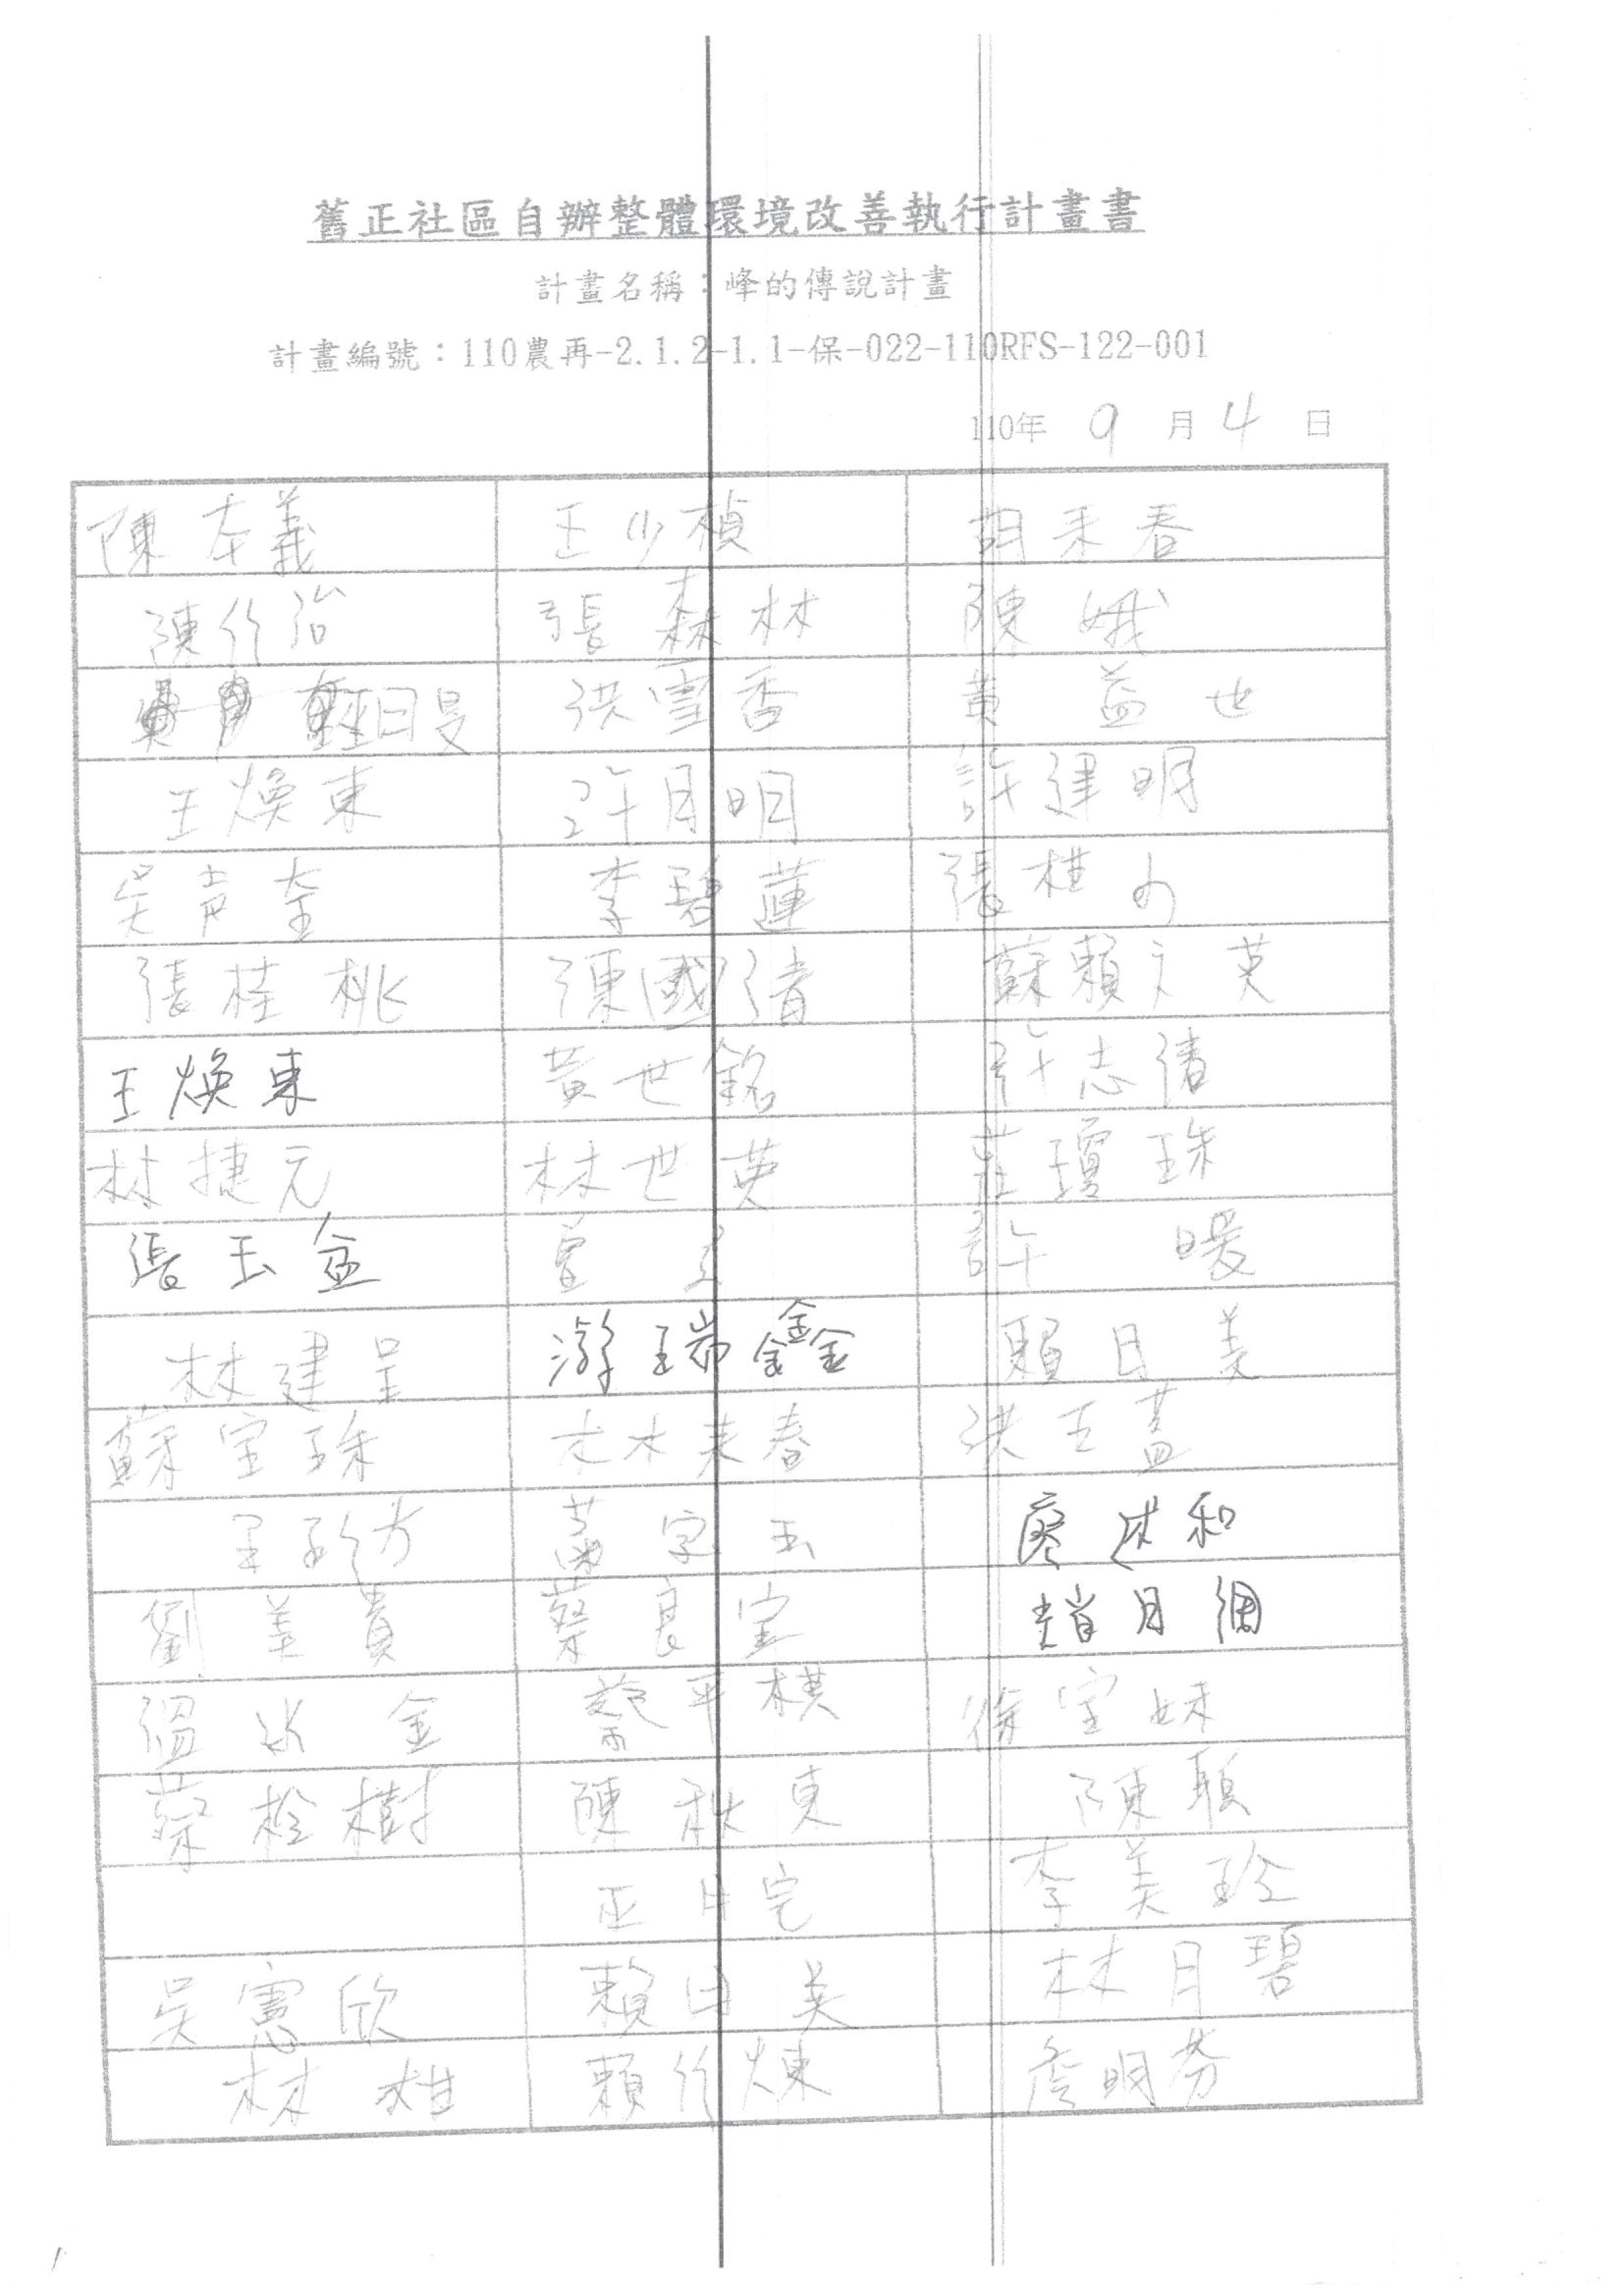 舊正社區自辦整體環境改善執行計畫書
計畫名稱：峰的傳說計畫
計畫編號：110農再-2.1.2-1.1-保-022-110RFS-122-001
110年 9 月 4 日
陳本義 王少楨 胡禾春
陳竹治 張森林 陳娥
洪雪香 黃益世
王煥東 許月明 許建明
吳 李碧蓮 張桂
張桂桃 陳國清 蘇賴文英
王煥東 黃世銘 許志清
林捷元 林世英 莊瓊珠
張玉盆 許暖
林建呈 游瑞鑫 賴日美
蘇宝珠 春 洪玉蓋
玉 廖述和
劉美貴 蔡良宝 趙月
溫水金 蔡平模 徐宝妹
蔡栓樹 陳秋東 陳聪
李美珍
吳憲欣 賴日美 林月碧
林雄 賴竹煉 詹明芬